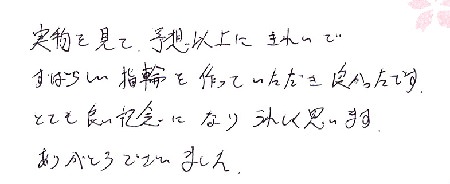 実物を見て、予想以上にきれいで
すばらしい指輪を作っていただき良かったです。
とても良い記念になりうれしく思います。
ありがとうございました。